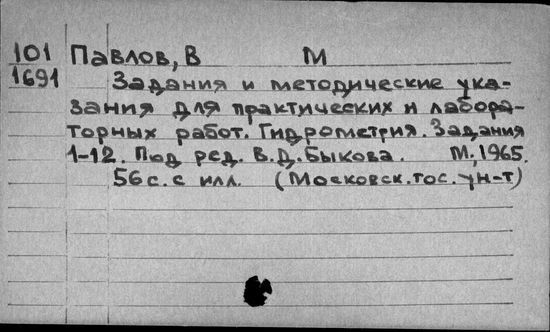 101 Павлов, В М
1691 Задания и методические ука-
зания для практических и лабора-
торных работ. Гидрометрия. Задания
1-12. Под ред. В.Д.Быкова. М.,1965.
56 с. с илл. (Московск.гос.ун-т)